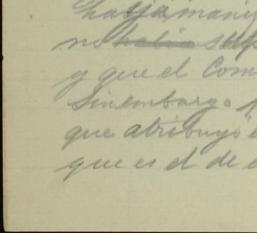 haya, mani
no había sup
y que el Com
Sinembargo
que atribuyó
que es el de